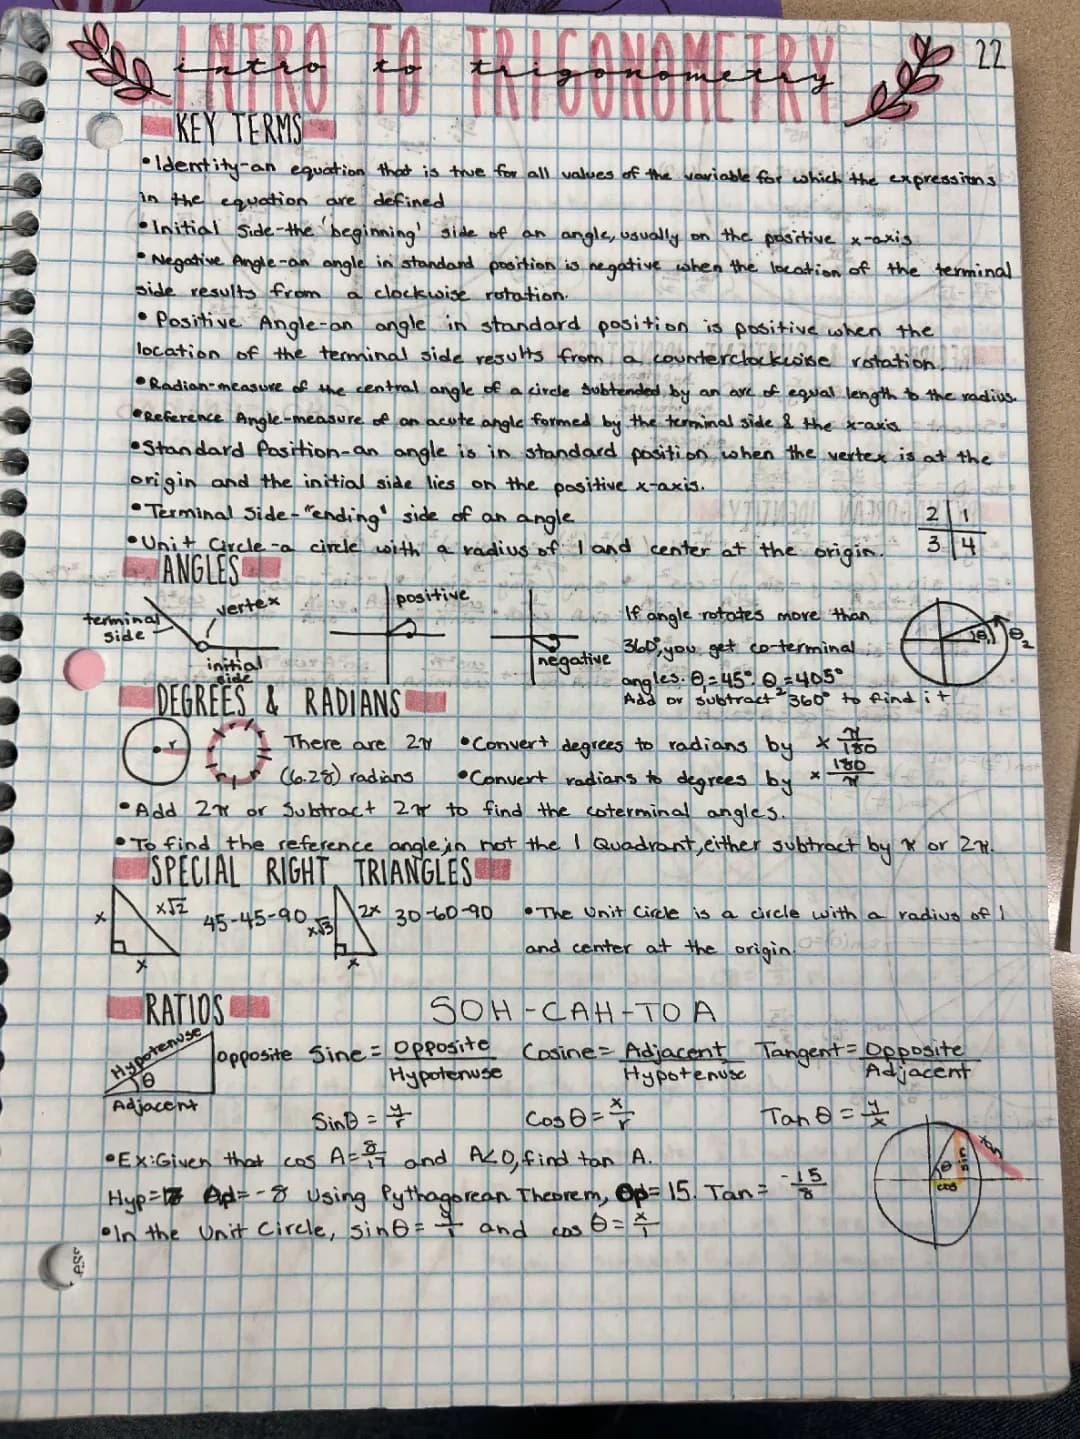 22
INTRO TO TRIGONOMETRY
intro to trigonometry
KEY TERMS
•Identity-an equation that is true for all values of the variable for which the expressions
in the equation are defined
•Initial Side-the 'beginning' side of an angle, usually on the positive x-axis
•Negative Angle-an angle in standard position is negative when the location of the terminal
side results from a clockwise rotation.
•Positive Angle-an angle in standard position is positive when the
location of the terminal side results from a counterclockwise rotation.
•Radian-measure of the central angle of a circle subtended by an arc of equal length to the radius.
•Reference Angle-measure of an acute angle formed by the terminal side & the x-axis
•Standard Position-an angle is in standard position when the vertex is at the
origin and the initial side lies on the positive x-axis.
•Terminal Side-"ending" side of an angle
2 1
3 4
•Unit Circle-a circle with a radius of 1 and center at the origin.
ANGLES
terminal side
vertex
initial side
positive
negative
If angle rotates more than
360°, you get co-terminal
angles. θ₁=45° θ₂=405°
Add or subtract 360° to find it
θ₁ θ₂
DEGREES & RADIANS
r
There are 2π •Convert degrees to radians by × π/180
(6.28) radians •Convert radians to degrees by × 180/π
•Add 2π or Subtract 2π to find the coterminal angles.
•To find the reference angle, in not the 1 Quadrant, either subtract by π or 2π.
SPECIAL RIGHT TRIANGLES
x x√2 x 45-45-90
x√3 2x x 30-60-90
•The Unit Circle is a circle with a radius of 1
and center at the origin.
RATIOS SOH-CAH-TOA
Hypotenuse
opposite
θ
Adjacent
Sine = Opposite/Hypotenuse Cosine = Adjacent/Hypotenuse Tangent = Opposite/Adjacent
Sinθ = y/r Cosθ = x/r Tan θ = y/x
•Ex: Given that cos A = 8/17 and A<0, find tan A.
Hyp=17 Ad=-8 Using Pythagorean Theorem, Op=15. Tan = -15/8
•In the Unit Circle, sinθ = y/1 and cos θ = x/1
θ sin cos tan